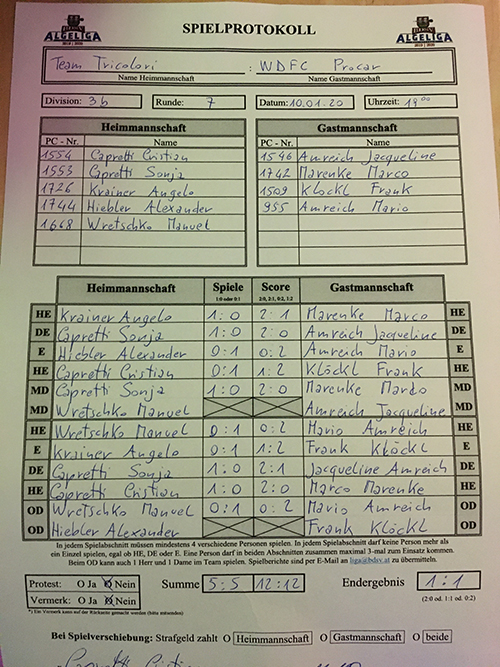 ALGELIGA SPIELPROTOKOLL ALGELIGA
2019 | 2020 2019 | 2020
Team Tricolori : WDFC Procar
Name Heimmannschaft Name Gastmannschaft
Division: 3b Runde: 7 Datum: 10.01.20 Uhrzeit: 19 00
Heimmannschaft Gastmannschaft
PC - Nr. Name PC - Nr. Name
1554 Capretti Cristian 1546 Amreich Jacqueline
1553 Capretti Sonja 1742 Marenke Marco
1726 Krainer Angelo 1509 Klöckl Frank
1744 Hiebler Alexander 955 Amreich Mario
1668 Wretschko Manuel
Heimmannschaft Spiele Score Gastmannschaft
1:0 oder 0:1 2:0, 2:1, 0:2, 1:2
HE Krainer Angelo 1:0 2:1 Marenke Marco HE
DE Capretti Sonja 1:0 2:0 Amreich Jacqueline DE
E Hiebler Alexander 0:1 0:2 Amreich Mario E
HE Capretti Cristian 0:1 1:2 Klöckl Frank HE
MD Capretti Sonja 1:0 2:0 Marenke Marco MD
MD Wretschko Manuel Amreich Jacqueline MD
HE Wretschko Manuel 0:1 0:2 Mario Amreich HE
E Krainer Angelo 0:1 1:2 Frank Klöckl E
DE Capretti Sonja 1:0 2:1 Jacqueline Amreich DE
HE Capretti Cristian 1:0 2:0 Marco Marenke HE
OD Wretschko Manuel 0:1 0:2 Mario Amreich OD
OD Hiebler Alexander Frank Klöckl OD
In jedem Spielabschnitt müssen mindestens 4 verschiedene Personen spielen. In jedem Spielabschnitt darf keine Person mehr als
ein Einzel spielen, egal ob HE, DE oder E. Eine Person darf in beiden Abschnitten zusammen maximal 3-mal zum Einsatz kommen.
Beim OD kann auch 1 Herr und 1 Dame im Team spielen. Spielberichte sind per E-Mail an liga@bdsv.at zu übermitteln.
Protest: O Ja O Nein Summe 5:5 12:12 Endergebnis 1:1
Vermerk: O Ja O Nein (2:0 od. 1:1 od. 0:2)
*) Ein Vermerk kann auf der Rückseite gemacht werden (bitte anmerken)
Bei Spielverschiebung: Strafgeld zahlt O Heimmannschaft O Gastmannschaft O beide